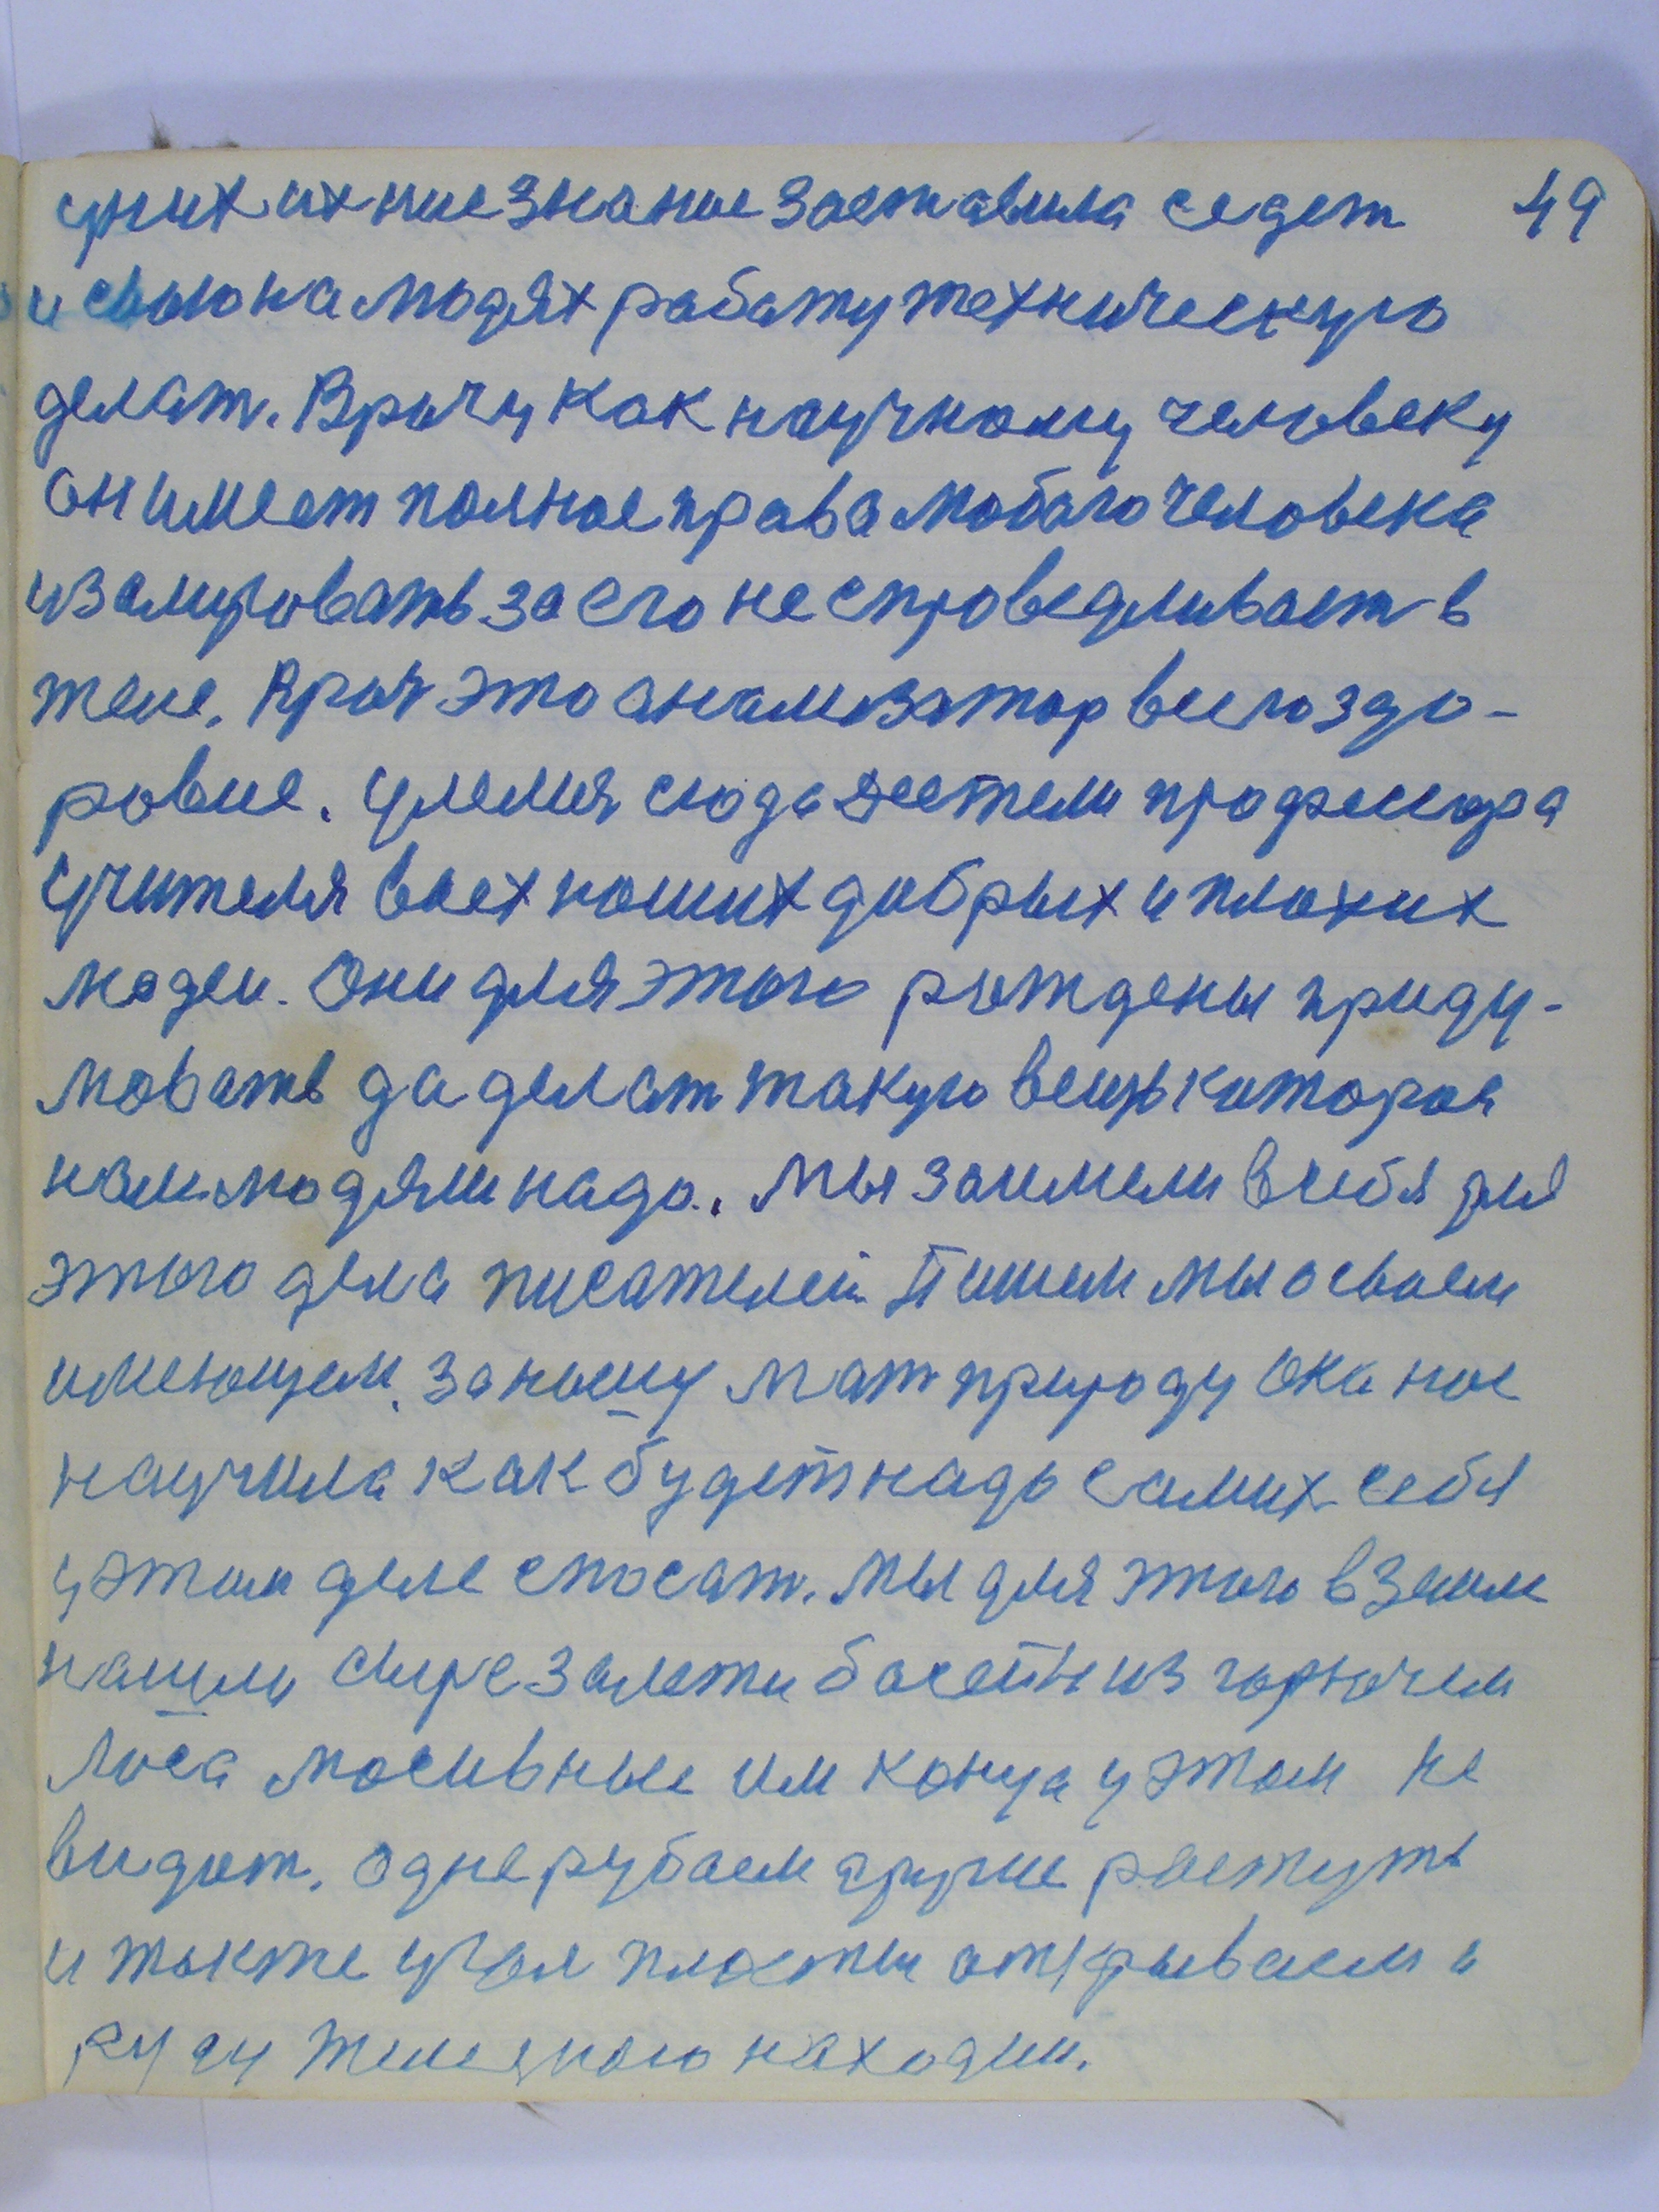 49
у них ихние знание заставила седет
и свою на людях работу техническую
делат. Врачу как научному человеку
он имеет полное права любого человека
изалировать за его несправедливасть в
теле. Врач это анализатор всего здо-
ровие. сюда детели профессора
учителя всех наших добрых и плохих
людеи. Они для этого рождены приду-
мовать да делат такую вещь которая
нам людям надо. Мы заимели в себя для
этого дела писателей. Пишем мы о своем
имеющем. За нашу мат природу она нас
научила как будет надо самих себя
у этом деле спосат. Мы для этого в земле
нашли горючем
леса мосивные им конца у этом не
видат. Одне рубаем другие растуть
и также угля пласты открываем и
руду железного находим.